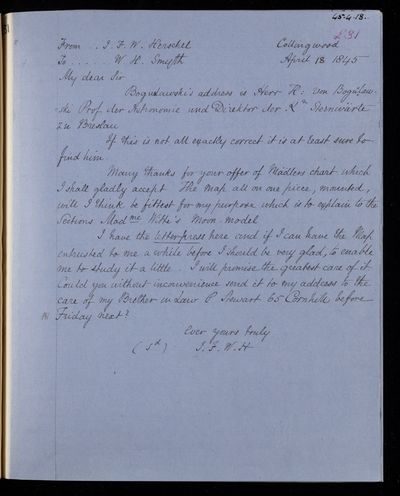 45-4-18.
From .. J. F. W. Herschel Collingwood
To ...... W. H. Smyth April 18 1845
My dear Sir
Boguslawski's address is Herr H: von Boguslaw-
ski Prof. der Astronomie und Direktor der K Sternwärte
zu Breslau
If this is not all exactly correct it is at least sure to
find him.
Many thanks for your offer of Mädlers chart which
I shall gladly accept The Map all on one piece, mounted,
will I think be fittest for my purpose which is to explain to the
Sections Mad me Witte's Moon-model
I have the letter-press here and if I can have the Map
entrusted to me a while before I should be very glad, to enable
me to study it a little .. I will promise the greatest care of it.
Could you without inconvenience send it to my address to the
care of my Brother in Law P Stewart 65 Cornhill before
Friday next?
Ever yours truly
(sd) J. F. W. H